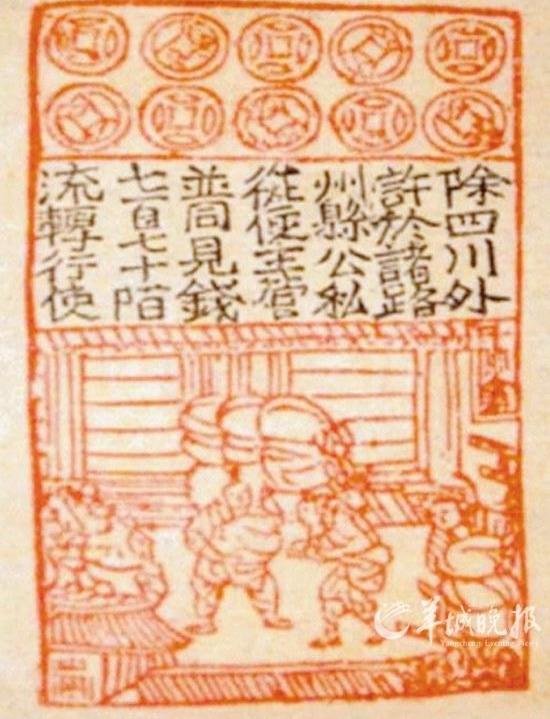 除四川外
許於諸路
州縣公私
從便主管
並同見錢
七百七十陌
流轉行使
羊城晚报
Yangcheng Evening News